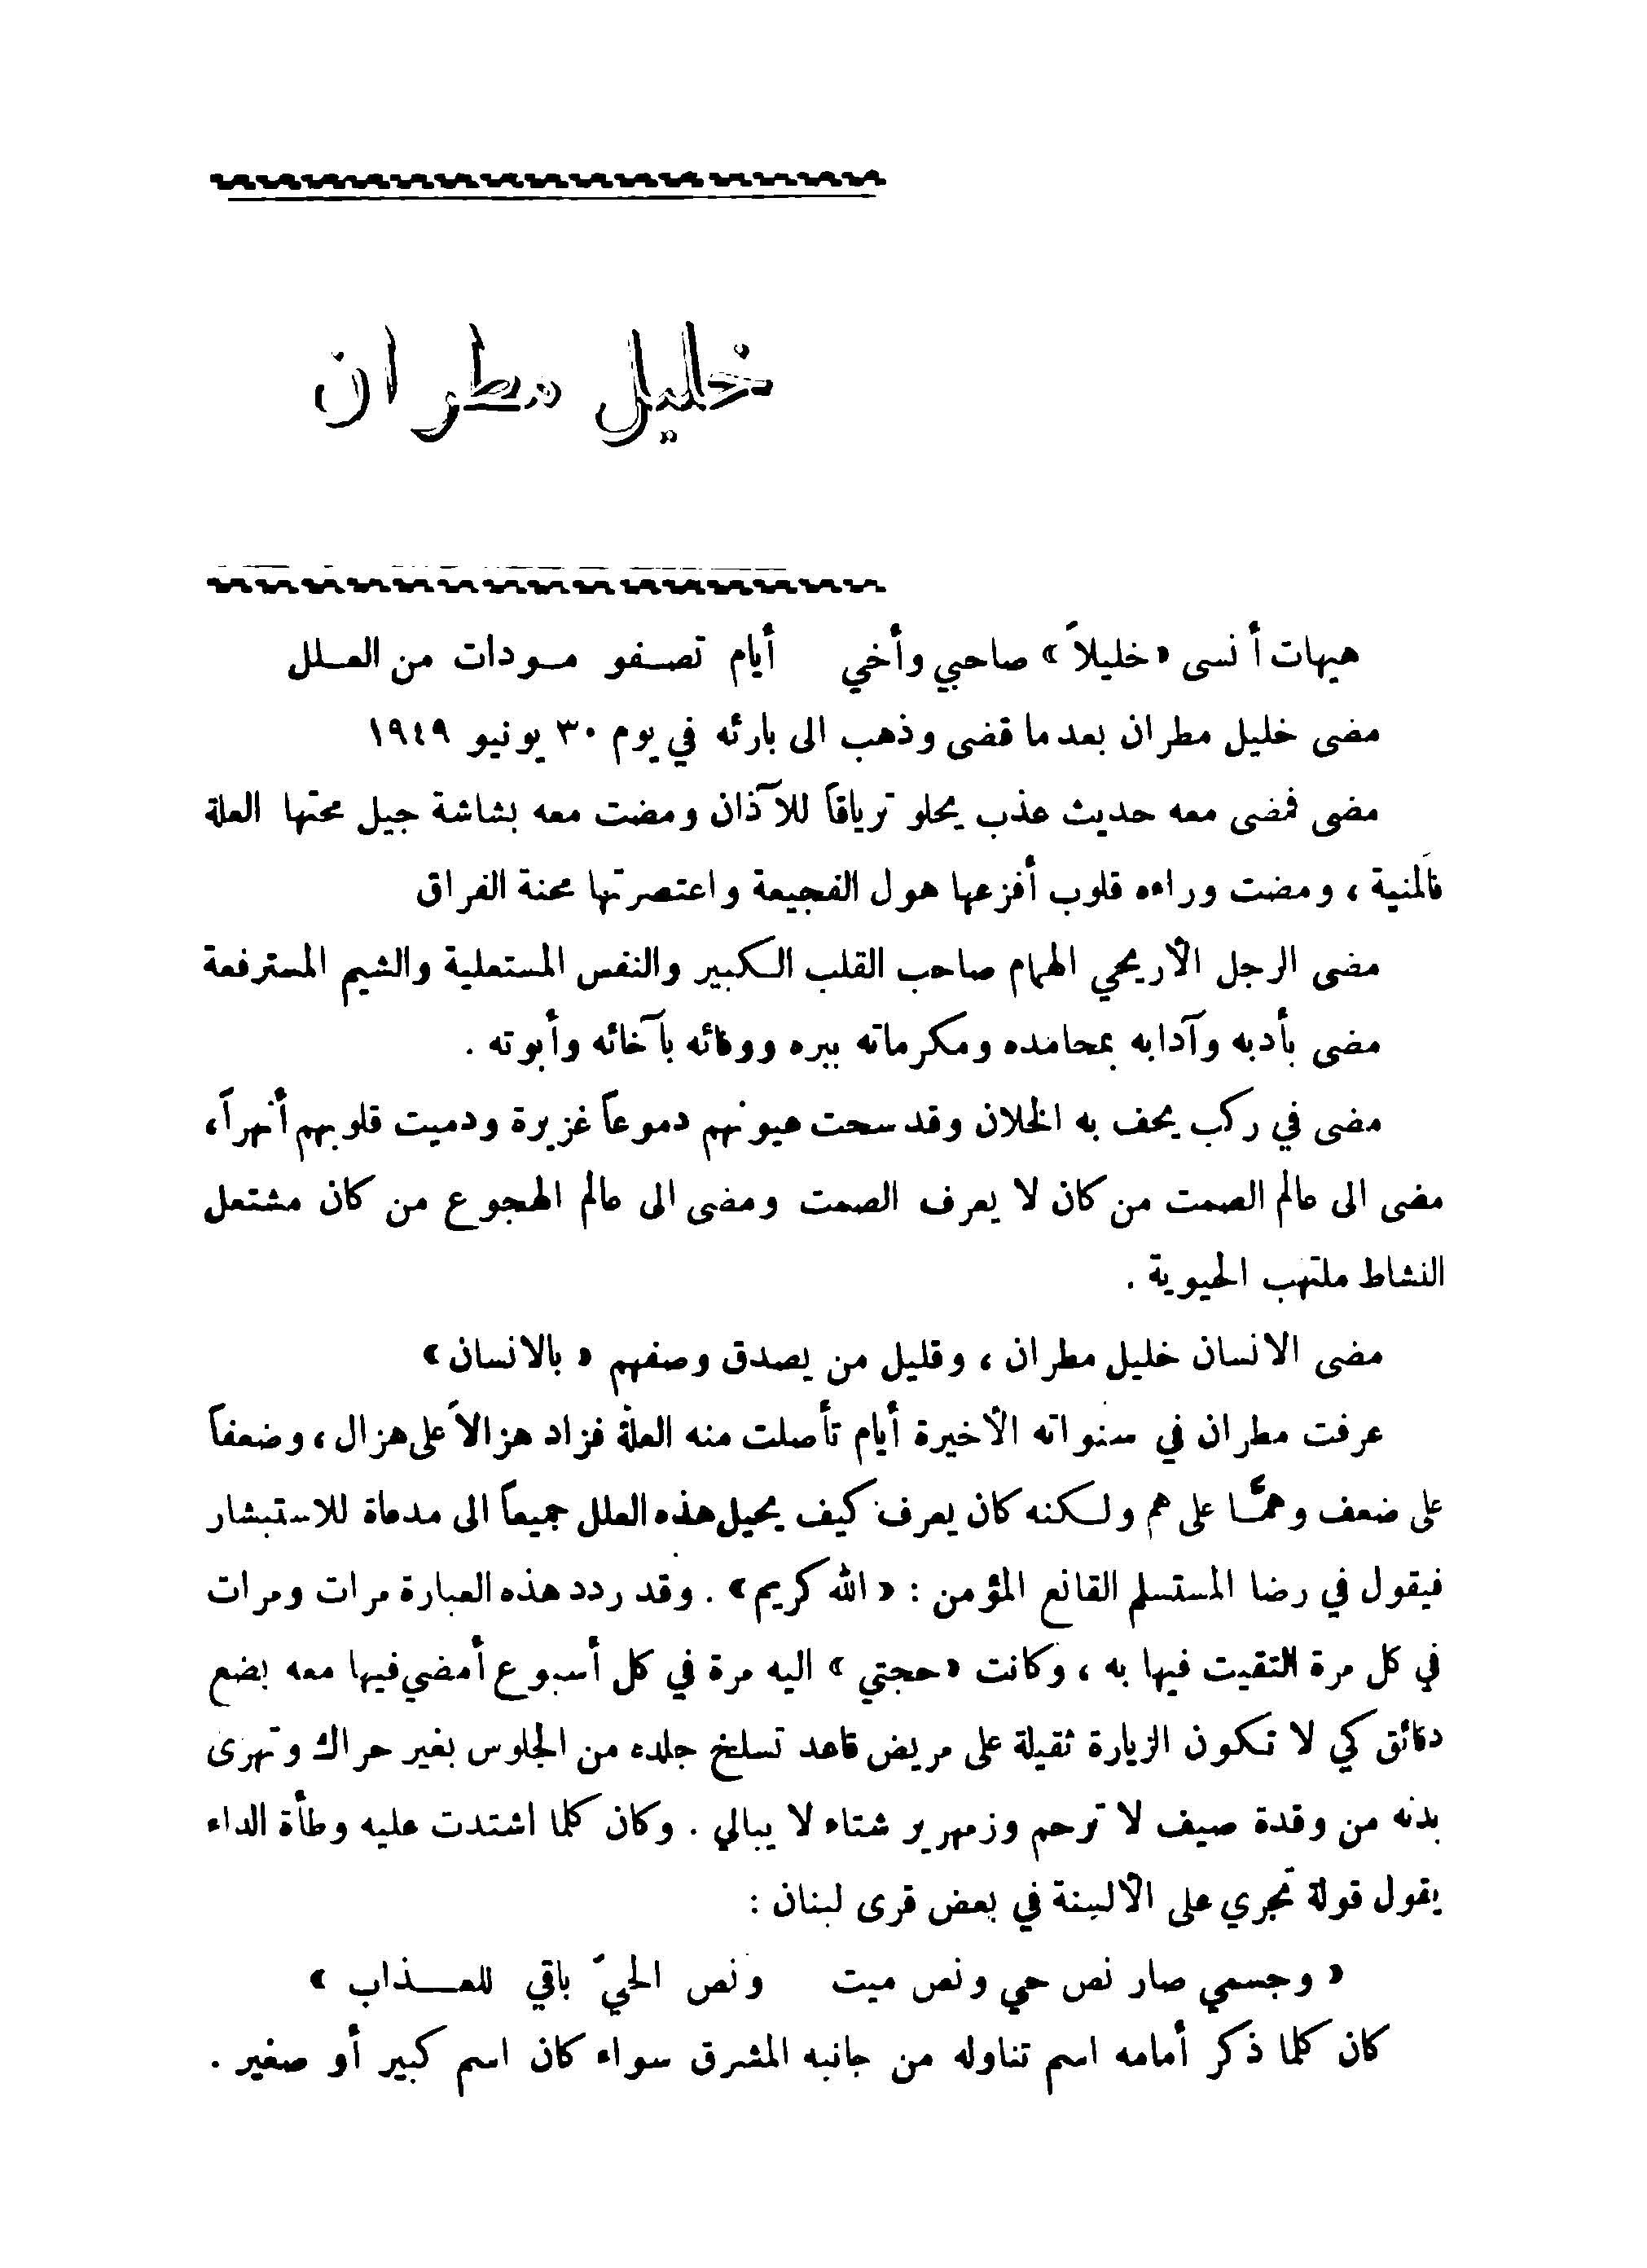 خليل مطران
هيهات أنسى «خليلاً» صاحبي وأخي أيام تصفو مودات من العلل
مضى خليل مطران بعد ما قضى وذهب الى بارئه في يوم ٣٠ يونيو ١٩٤٩
مضى فمضى معه حديث عذب يحلو ترياقاً للآذان ومضت معه بشاشة جيل محتها العلة
فالمنية ، ومضت وراءه قلوب أفزعها هول الفجيعة واعتصرتها محنة الفراق
مضى الرجل الأريحي الهمام صاحب القلب الكبير والنفس المستعلية والشيم المسترفعة
مضى بأدبه وآدابه بمحامده ومكرماته ببره ووفائه بآخائه وأبوته .
مضى في ركب يحف به الخلان وقد سحت عيونهم دموعاً غزيرة ودميت قلوبهم أنهراً،
مضى الى عالم الصمت من كان لا يعرف الصمت ومضى الى عالم الهجوع من كان مشتعل
النشاط ملتهب الحيوية .
مضى الانسان خليل مطران ، وقليل من يصدق وصفهم «بالانسان»
عرفت مطران في سنواته الأخيرة أيام تأصلت منه العلة فزاد هزالاً على هزال ، وضعفاً
على ضعف وهمًّا على هم ولكنه كان يعرف كيف يحيل هذه العلل جميعاً الى مدعاة للاستبشار
فيقول في رضا المستسلم القانع المؤمن : «الله كريم» . وقد ردد هذه العبارة مرات ومرات
في كل مرة التقيت فيها به ، وكانت «حجتي» اليه مرة في كل أسبوع أمضي فيها معه بضع
دقائق كي لا تكون الزيارة ثقيلة على مريض قاعد تسلخ جلده من الجلوس بغير حراك وتهرى
بدنه من وقدة صيف لا ترحم وزمهرير شتاء لا يبالي . وكان كلما اشتدت عليه وطأة الداء
يقول قولة تجري على الألسنة في بعض قرى لبنان :
«وجسمي صار نص حي ونص ميت ونص الحيّ باقي للعذاب»
كان كلما ذكر أمامه اسم تناوله من جانبه المشرق سواء كان اسم كبير أو صغير .